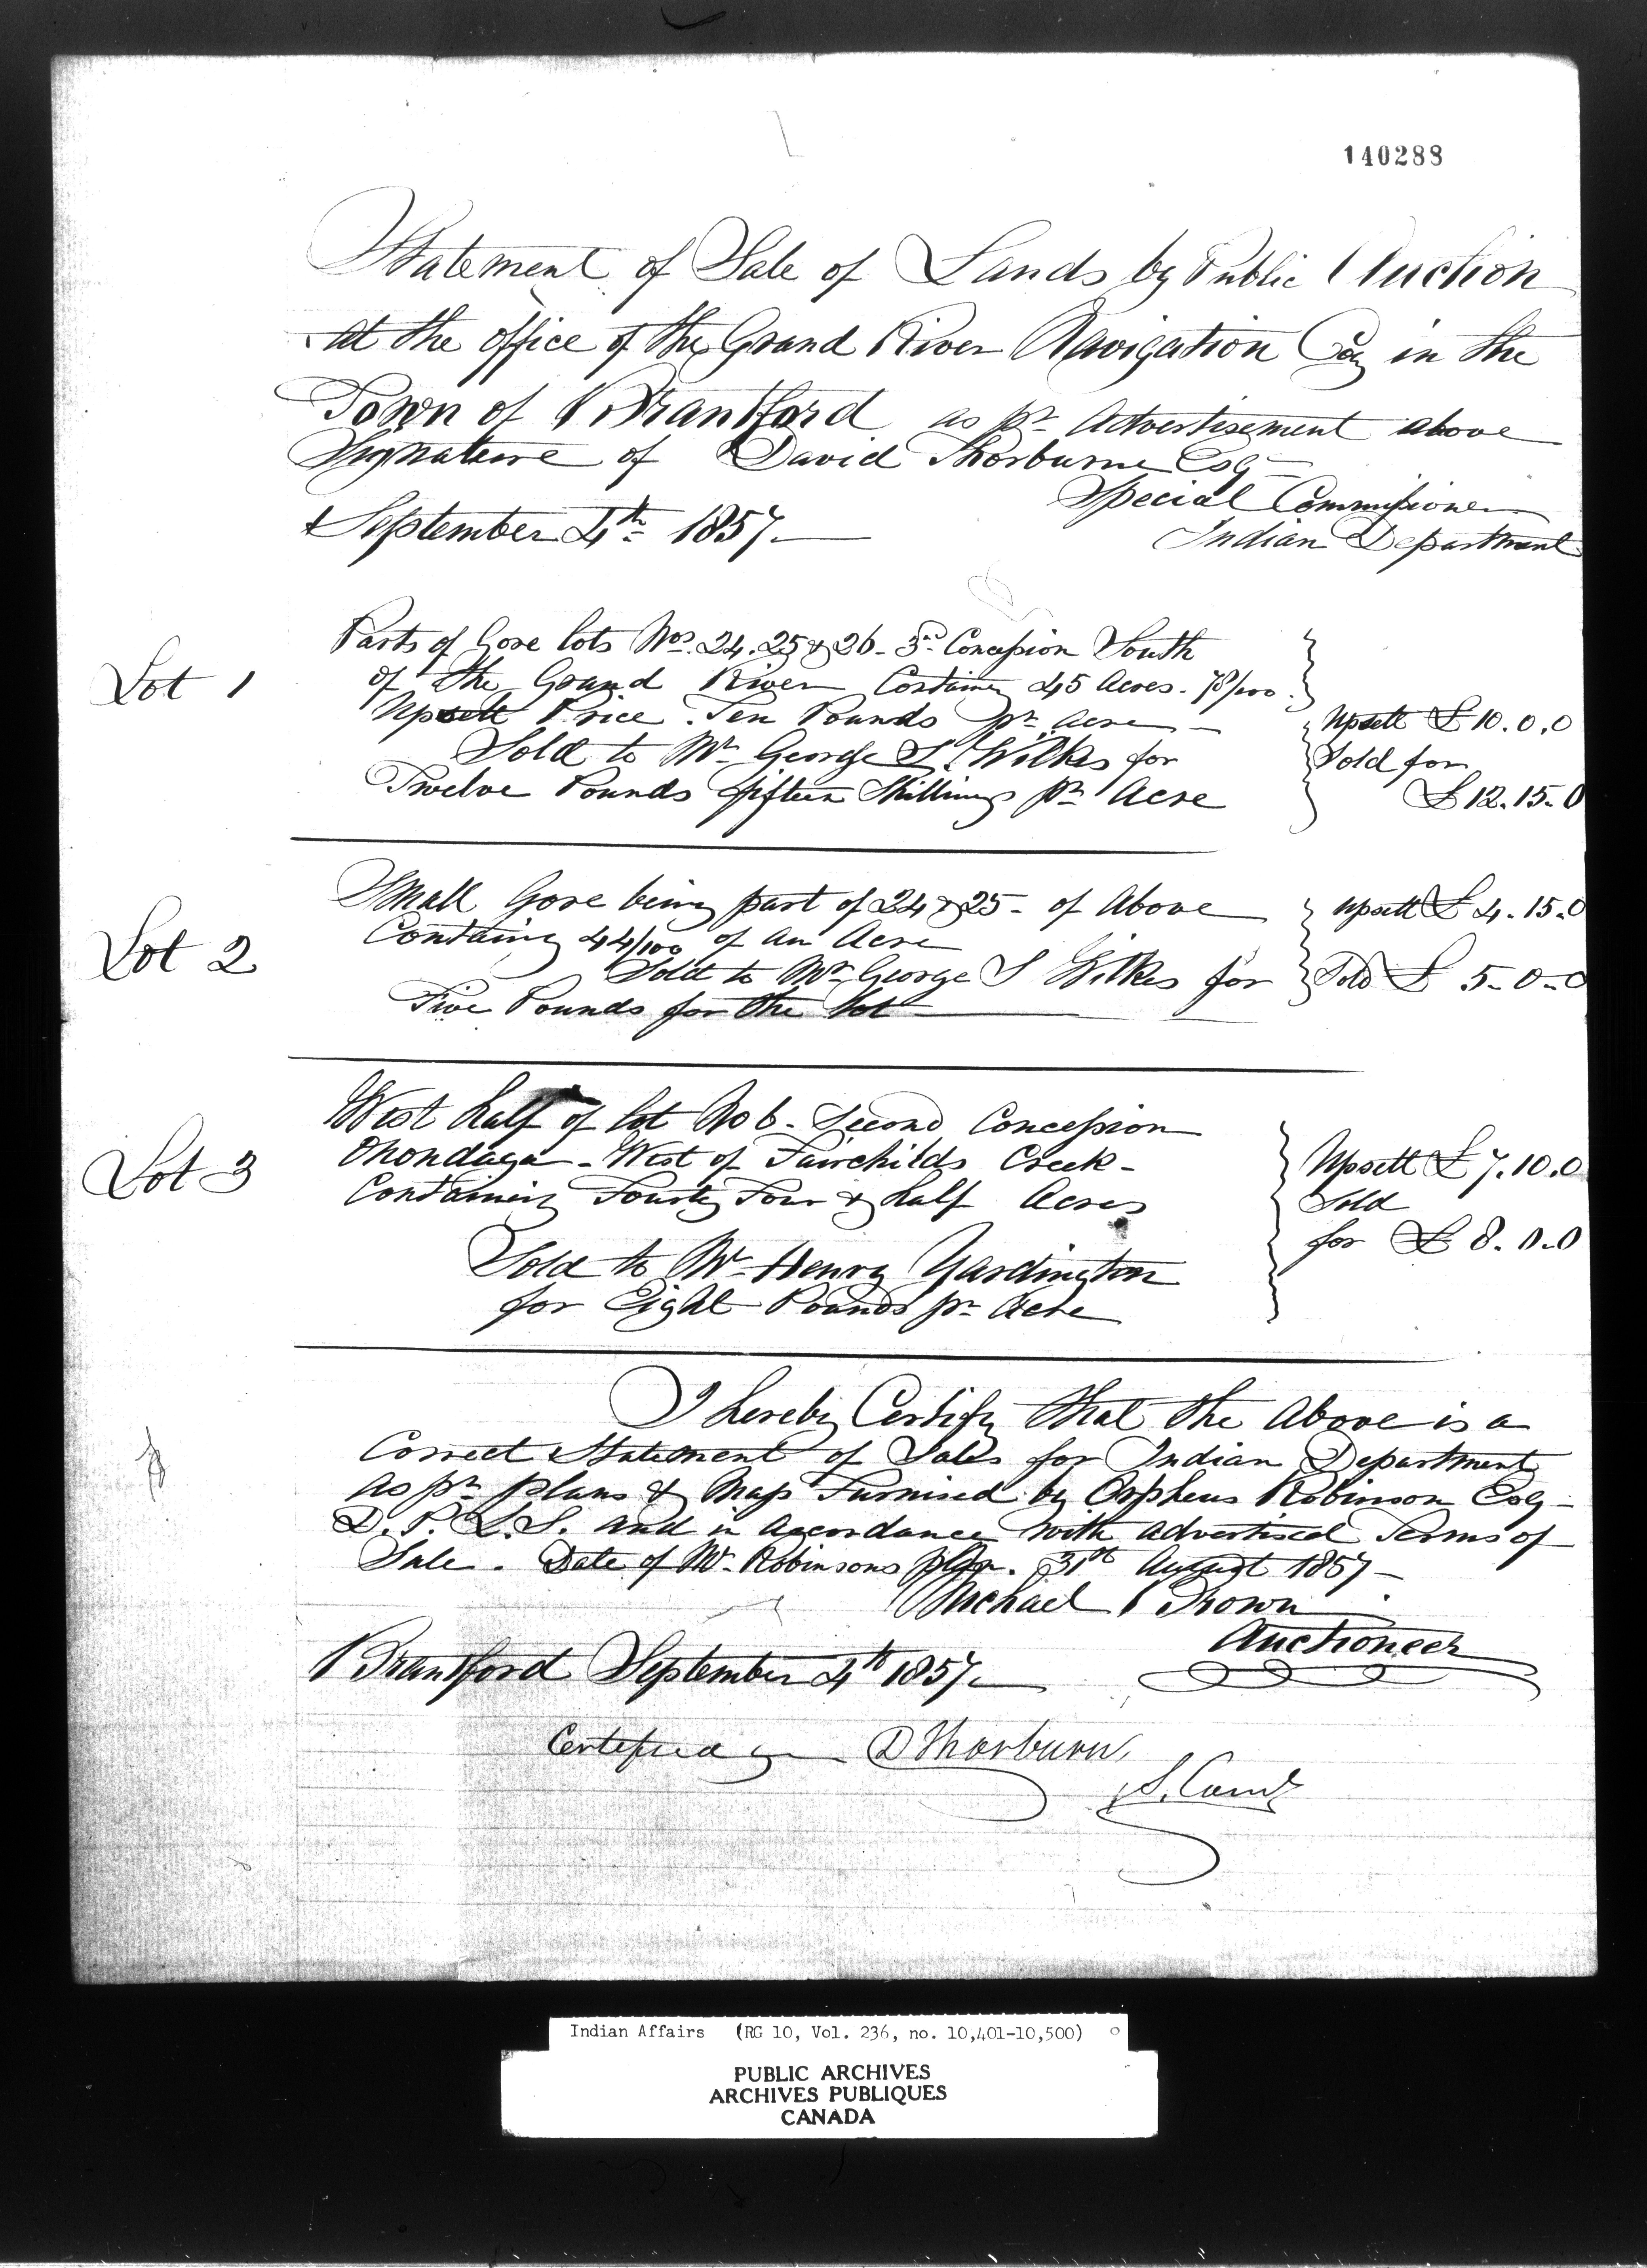 140288
Statement of Sale of Lands by Public Auction
at the office of the Grand River Navigation Coy in the
Town of Brantford as pr Advertisement above
Signature of David Thorburne Esq
Special Commissioner
September 4th 1857
Indian Department
Parts of Gore lots Nos. 24. 25 & 26 - 3rd Concession South
Lot 1
of the Grand River Containg 45 Acres. 78/100.
Upsett Price. Ten Pounds pr. acre
Upsett £10.0.0
Sold to Mr George S. Wilkes for
Sold for
Twelve Pounds fifteen Shillings pr Acre
£12.15.0
Small Gore being part of 24 & 25 - of Above
Upsett £4.15.0
Lot 2
Containg 44/100 of an Acre
Sold to Mr George S Wilkes for
Sold £ 5-0-0
Five Pounds for the lot
West half of lot No 6 - Second Concession
Onondaga - West of Fairchilds Creek -
Lot 3
Upsett £7.10.0
Containing Fourty Four & half Acres
Sold
for £ 8.0.0
Sold to Mr Henry Yardington
for Eight Pounds pr Acre
I hereby Certify that the Above is a
Correct Statement of Sales for Indian Department
as pr plans & Map Furnised by Orpheus Robinson Esq -
D. P. L. S. and in Accordance with advertised Terms of
Sale. Date of Mr Robinsons 31st August 1857 -
Michael Brown
Auctioneer
Brantford September 4th 1857
Certified D Thorburn,
S. Comr
Indian Affairs (RG 10, Vol. 236, no. 10,401-10,500)
PUBLIC ARCHIVES
ARCHIVES PUBLIQUES
CANADA